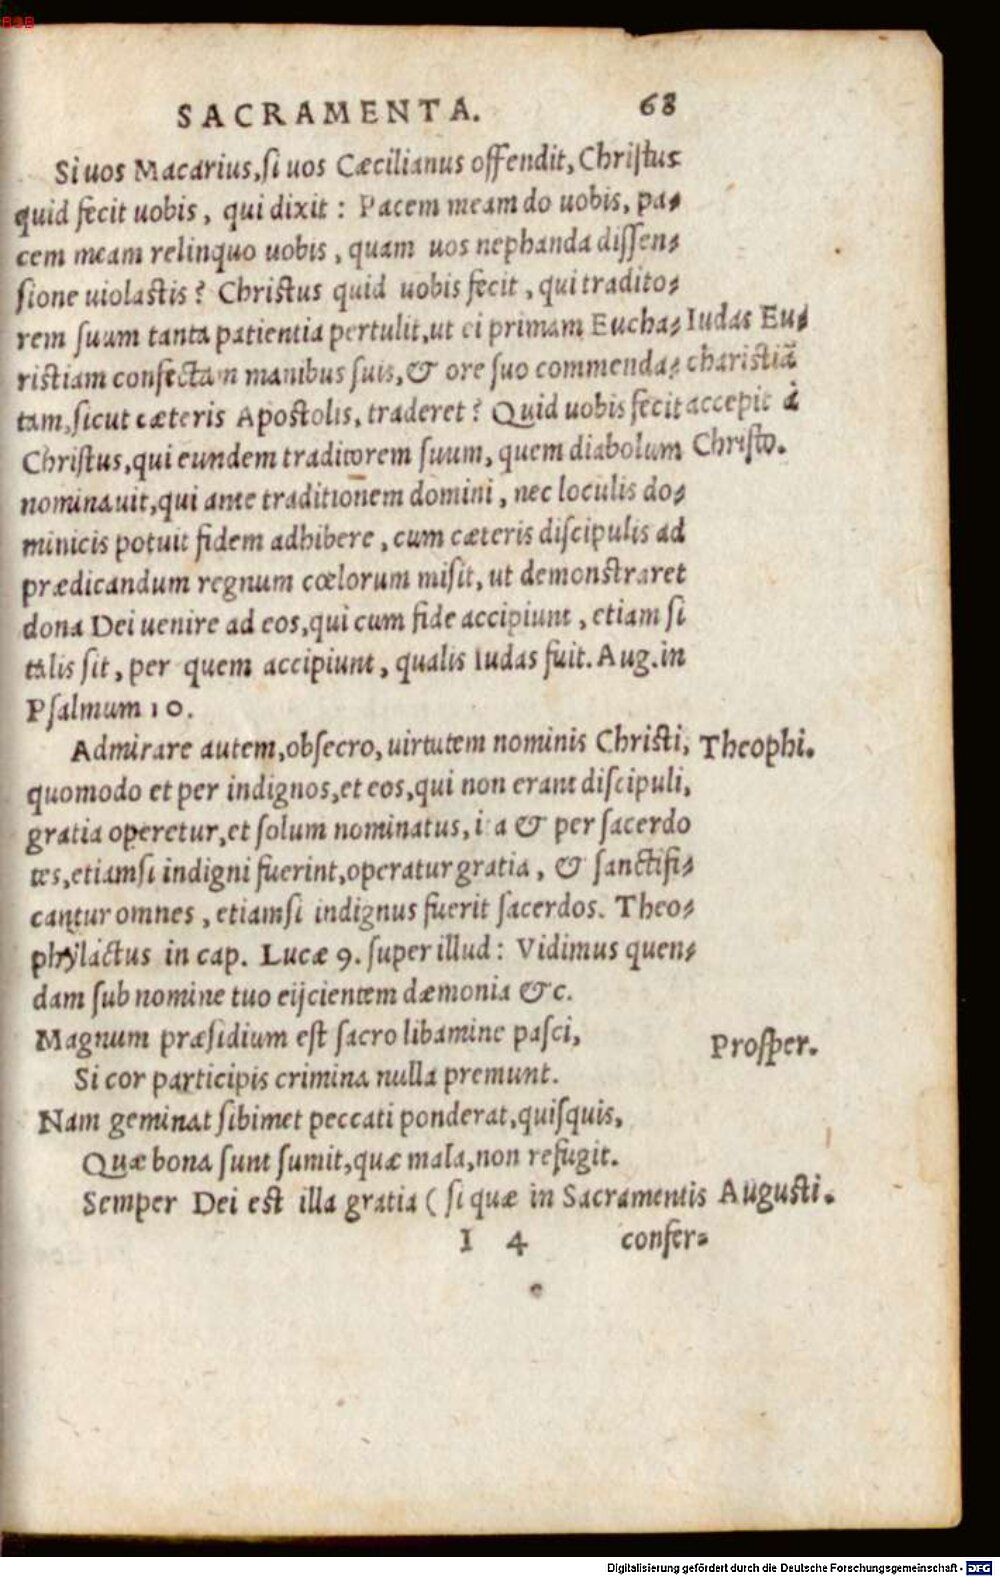 BSB
SACRAMENTA. 68
Si uos Macarius, si uos Cæcilianus offendit, Christus
quid fecit uobis, qui dixit: Pacem meam do uobis, pa-
cem meam relinquo uobis, quam uos nephanda dissen-
sione uiolastis? Christus quid uobis fecit, qui tradito-
rem suum tanta patientia pertulit, ut ei primam Eucha-
ristiam confectam manibus suis, & ore suo commenda-
tam, sicut cæteris Apostolis, traderet? Quid uobis fecit
Christus, qui eundem traditorem suum, quem diabolum
nominauit, qui ante traditionem domini, nec loculis do-
minicis potuit fidem adhibere, cum cæteris discipulis ad
prædicandum regnum cœlorum misit, ut demonstraret
dona Dei uenire ad eos, qui cum fide accipiunt, etiam si
talis sit, per quem accipiunt, qualis Iudas fuit. Aug. in
Psalmum 10.
Iudas Eu-
charistiã
accepit à
Christo.
Admirare autem, obsecro, uirtutem nominis Christi,
quomodo et per indignos, et eos, qui non erant discipuli,
gratia operetur, et solum nominatus, ita & per sacerdo
tes, etiamsi indigni fuerint, operatur gratia, & sanctifi-
cantur omnes, etiamsi indignus fuerit sacerdos. Theo-
phylactus in cap. Lucæ 9. super illud: Vidimus quen-
dam sub nomine tuo eijcientem dæmonia &c.
Theophi.
Magnum præsidium est sacro libamine pasci,
Si cor participis crimina nulla premunt.
Nam geminat sibimet peccati ponderat, quisquis,
Quæ bona sunt sumit, quæ mala, non refugit.
Prosper.
Semper Dei est illa gratia (si quæ in Sacramentis
Augusti.
I 4 confer-
Digitalisierung gefördert durch die Deutsche Forschungsgemeinschaft - DFG